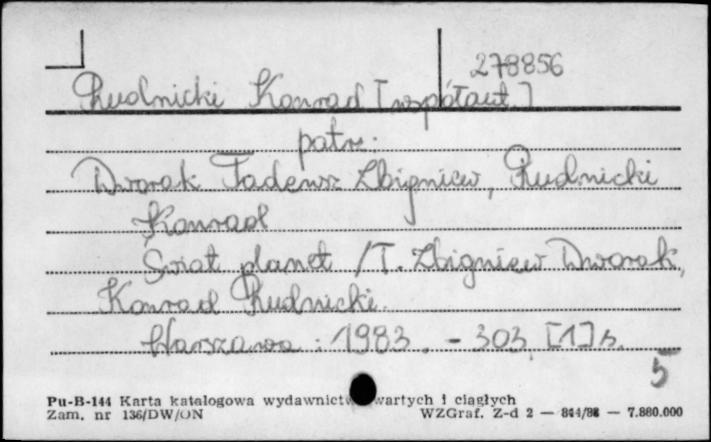 278856
Rudnicki Konrad [współaut.]
patrz:
Dworak Tadeusz Zbigniew, Rudnicki
Konrad
Świat planet / T. Zbigniew Dworak,
Konrad Rudnicki.
Warszawa : 1983. - 303, [1] s.
5
Pu-B-144 Karta katalogowa wydawnictw zwartych i ciągłych
Zam. nr 136/DW/ON WZGraf. Z-d 2 — — 7.880.000